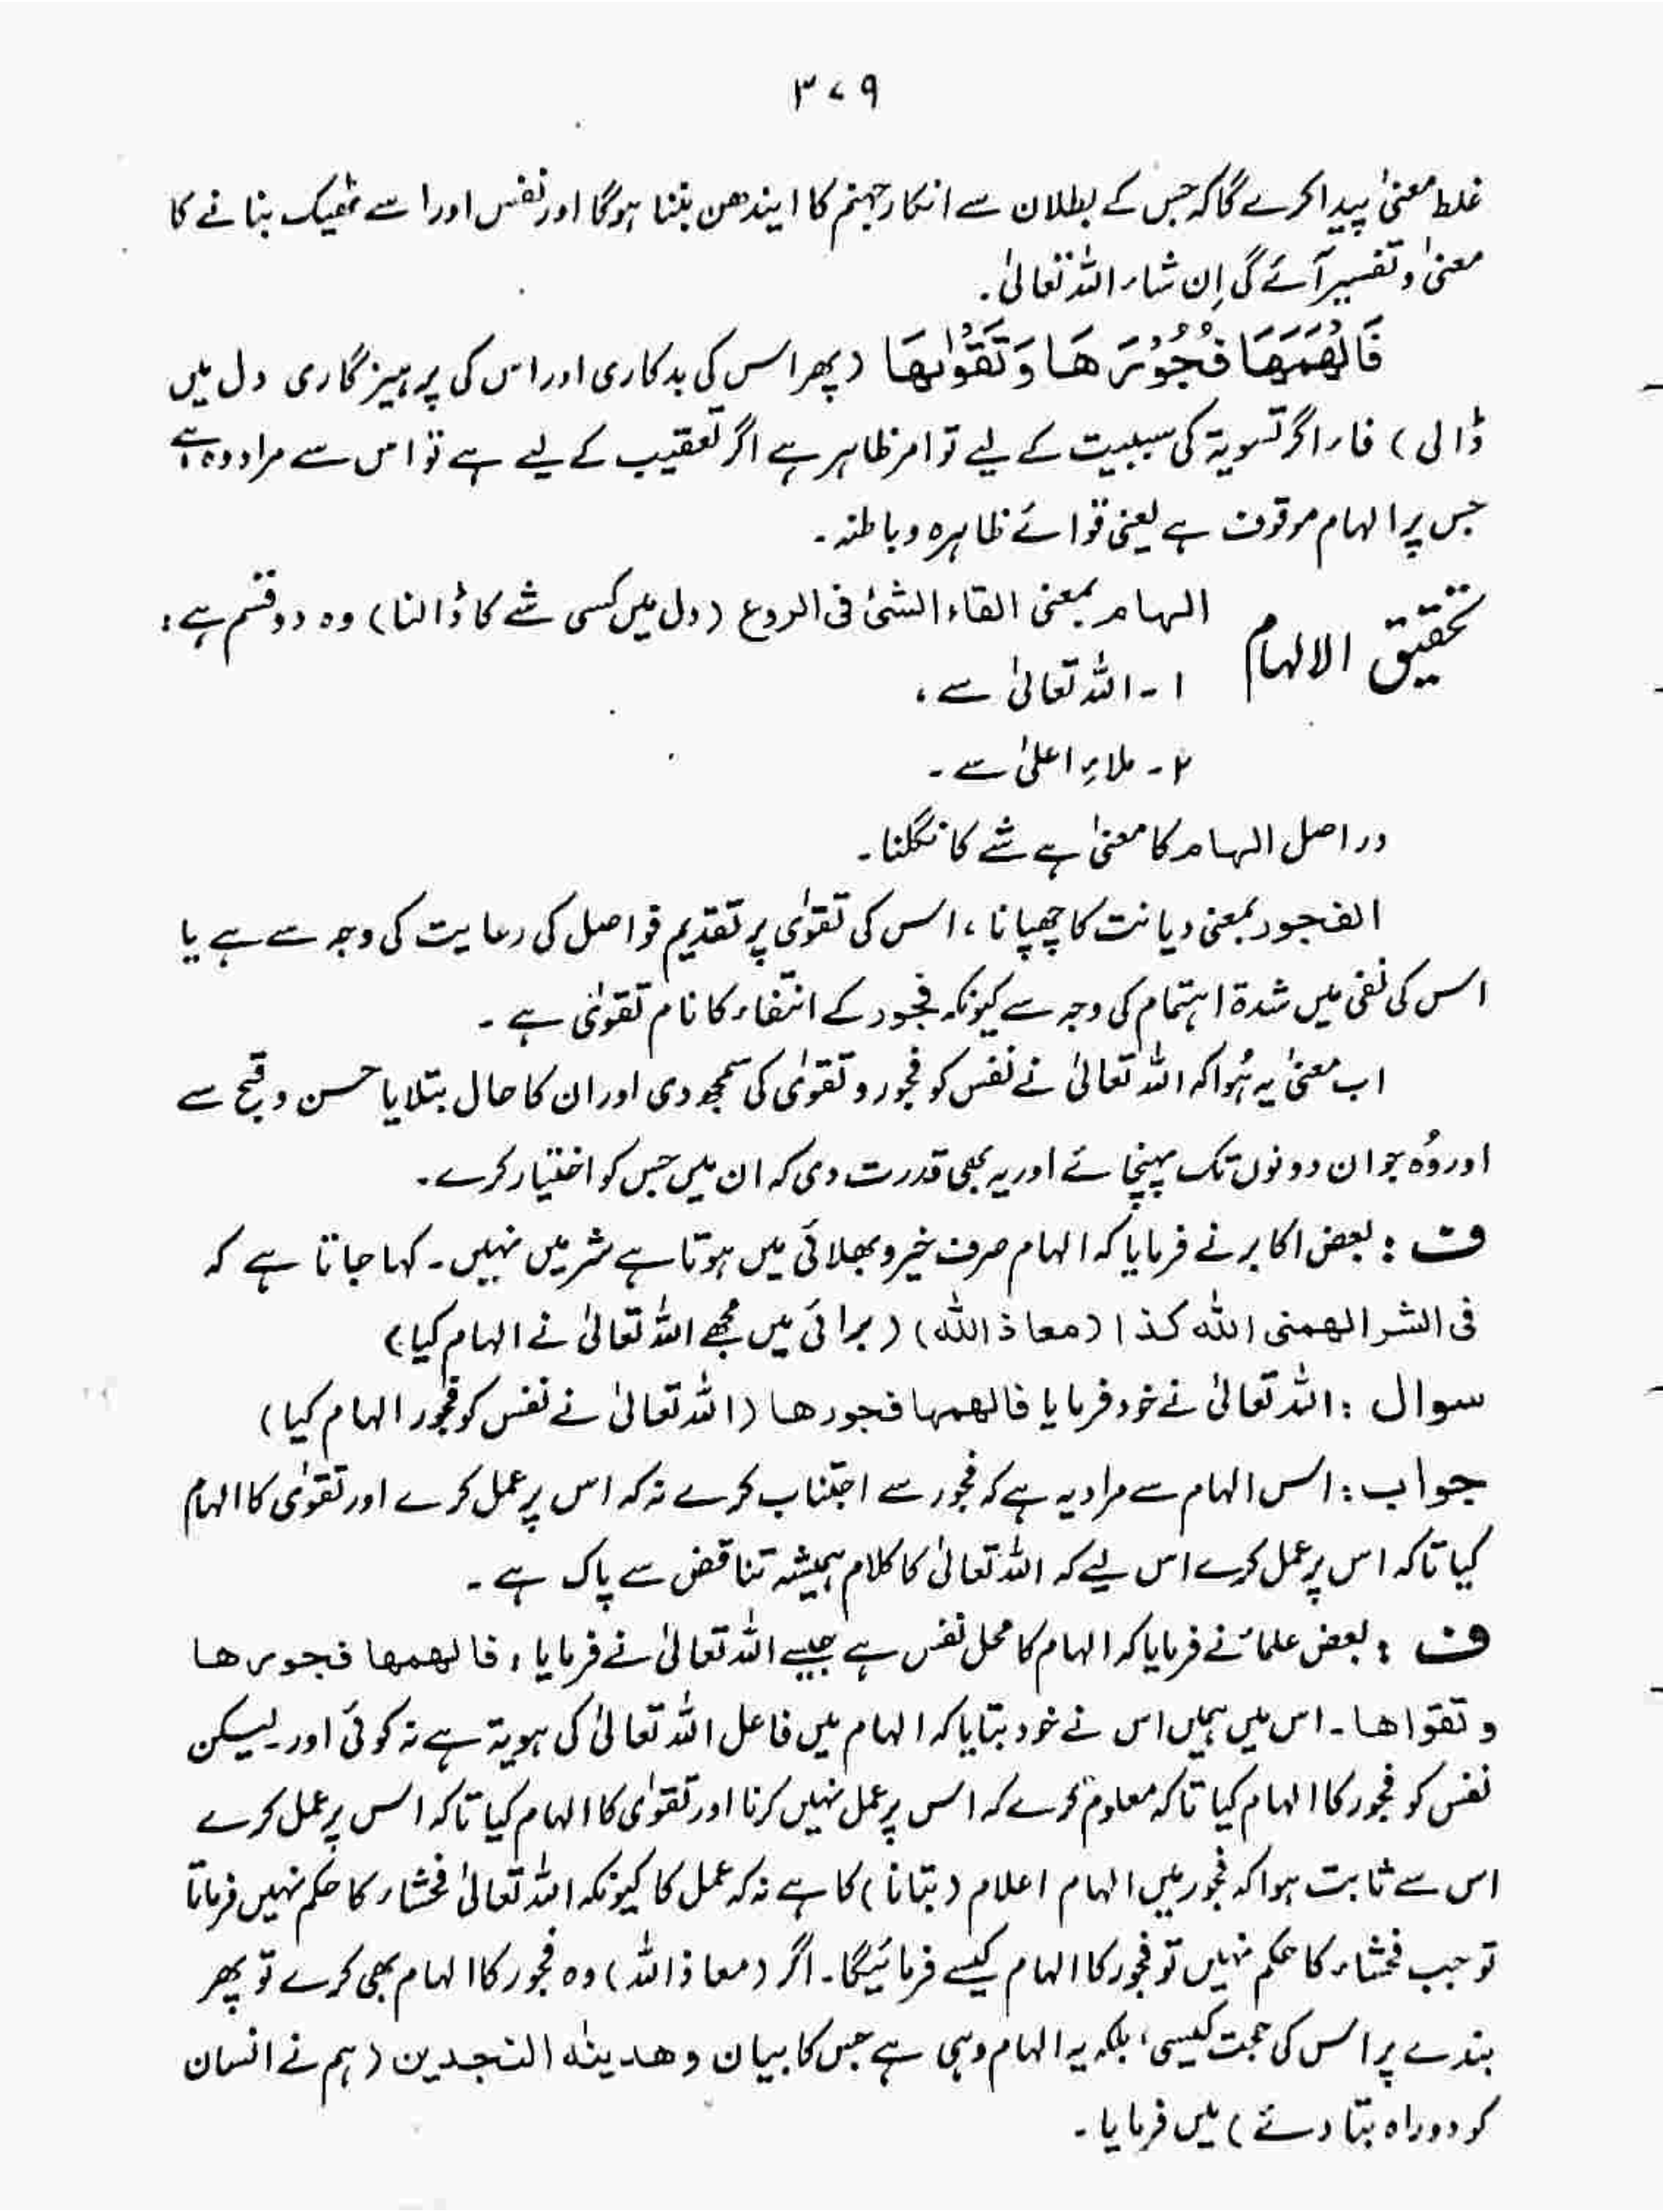 ۳۷۹
غلط معنیٰ پیدا کرے گا کہ جس کے بطلان سے انکار جہنم کا ایندھن بننا ہوگا اور نفس اور اسے ٹھیک بنانے کا
معنیٰ و تفسیر آئے گی اِن شاء اللہ تعالیٰ۔
فَاَلْهَمَهَا فُجُوْرَهَا وَتَقْوٰىهَا (پھر اس کی بدکاری اور اس کی پرہیزگاری دل میں
ڈالی) فاء اگر تسویۃ کی سببیت کے لیے تو امر ظاہر ہے اگر تعقیب کے لیے ہے تو اس سے مراد وہ ہے
جس پر الہام موقوف ہے یعنی قوائے ظاہرہ و باطنہ۔
تحقیق الالہام
الہام بمعنی القاء الشئ فی الروع (دل میں کسی شے کا ڈالنا) وہ دو قسم ہے:
۱۔ اللہ تعالیٰ سے،
۲۔ ملاءِ اعلیٰ سے۔
دراصل الہام کا معنیٰ ہے شے کا نگلنا۔
الفجور بمعنی دیانت کا چھپانا، اس کی تقوٰی پر تقدیم فواصل کی رعایت کی وجہ سے ہے یا
اس کی نفی میں شدۃ اہتمام کی وجہ سے کیونکہ فجور کے انتفاء کا نام تقویٰ ہے۔
اب معنیٰ یہ ہُوا کہ اللہ تعالیٰ نے نفس کو فجور و تقوٰی کی سمجھ دی اور ان کا حال بتلایا حسن و قبح سے
اور وُہ جو ان دونوں تک پہنچائے اور یہ بھی قدرت دی کہ ان میں جس کو اختیار کرے۔
ف : بعض اکابر نے فرمایا کہ الہام صرف خیر و بھلائی میں ہوتا ہے شر میں نہیں۔ کہا جاتا ہے کہ
فی الشر الھمنی اللہ کذا (معاذ اللہ) (برائی میں مجھے اللہ تعالیٰ نے الہام کیا)
سوال : اللہ تعالیٰ نے خود فرمایا فالھمہا فجورھا (اللہ تعالیٰ نے نفس کو فجور الہام کیا)
جواب : اس الہام سے مراد یہ ہے کہ فجور سے اجتناب کرے نہ کہ اس پر عمل کرے اور تقوٰی کا الہام
کیا تاکہ اس پر عمل کرے اس لیے کہ اللہ تعالیٰ کا کلام ہمیشہ تناقض سے پاک ہے۔
ف : بعض علماء نے فرمایا کہ الہام کا محل نفس ہے جیسے اللہ تعالیٰ نے فرمایا، فالھمھا فجورھا
و تقواھا۔ اس میں ہمیں اس نے خود بتایا کہ الہام میں فاعل اللہ تعالیٰ کی ہویۃ ہے نہ کوئی اور۔ لیکن
نفس کو فجور کا الہام کیا تاکہ معلوم کرے کہ اس پر عمل نہیں کرنا اور تقوٰی کا الہام کیا تاکہ اس پر عمل کرے
اس سے ثابت ہوا کہ فجور میں الہام اعلام (بتانا) کا ہے نہ کہ عمل کا کیونکہ اللہ تعالیٰ فحشاء کا حکم نہیں فرماتا
تو جب فحشاء کا حکم نہیں تو فجور کا الہام کیسے فرمائیگا۔ اگر (معاذ اللہ) وہ فجور کا الہام بھی کرے تو پھر
بندے پر اس کی حجت کیسی، بلکہ یہ الہام وہی ہے جس کا بیان وھدینٰہ النجدین (ہم نے انسان
کو دو راہ بتا دئے) میں فرمایا۔